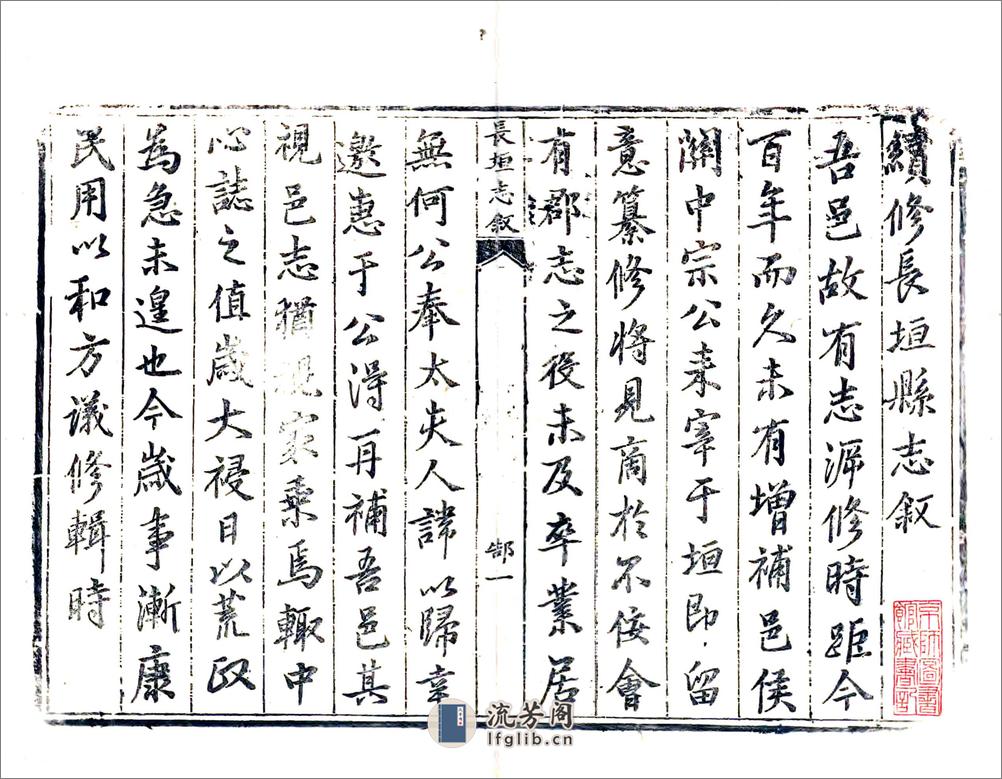 續修長垣縣志叙
吾邑故有志源修時距今
百年而久未有增補邑侯
關中宗公来宰于垣即留
意纂修將見商於不佞會
有郡志之役未及卒業居
長垣志叙
郜一
無何公奉太夫人諱以歸幸
邀惠于公得再補吾邑其
視邑志猶視家乗焉輙中
心誌之值歲大祲日以荒政
為急未遑也今歲事漸康
民用以和方議修輯時
京師圖書
館藏書記
流芳阁
lfglib.cn